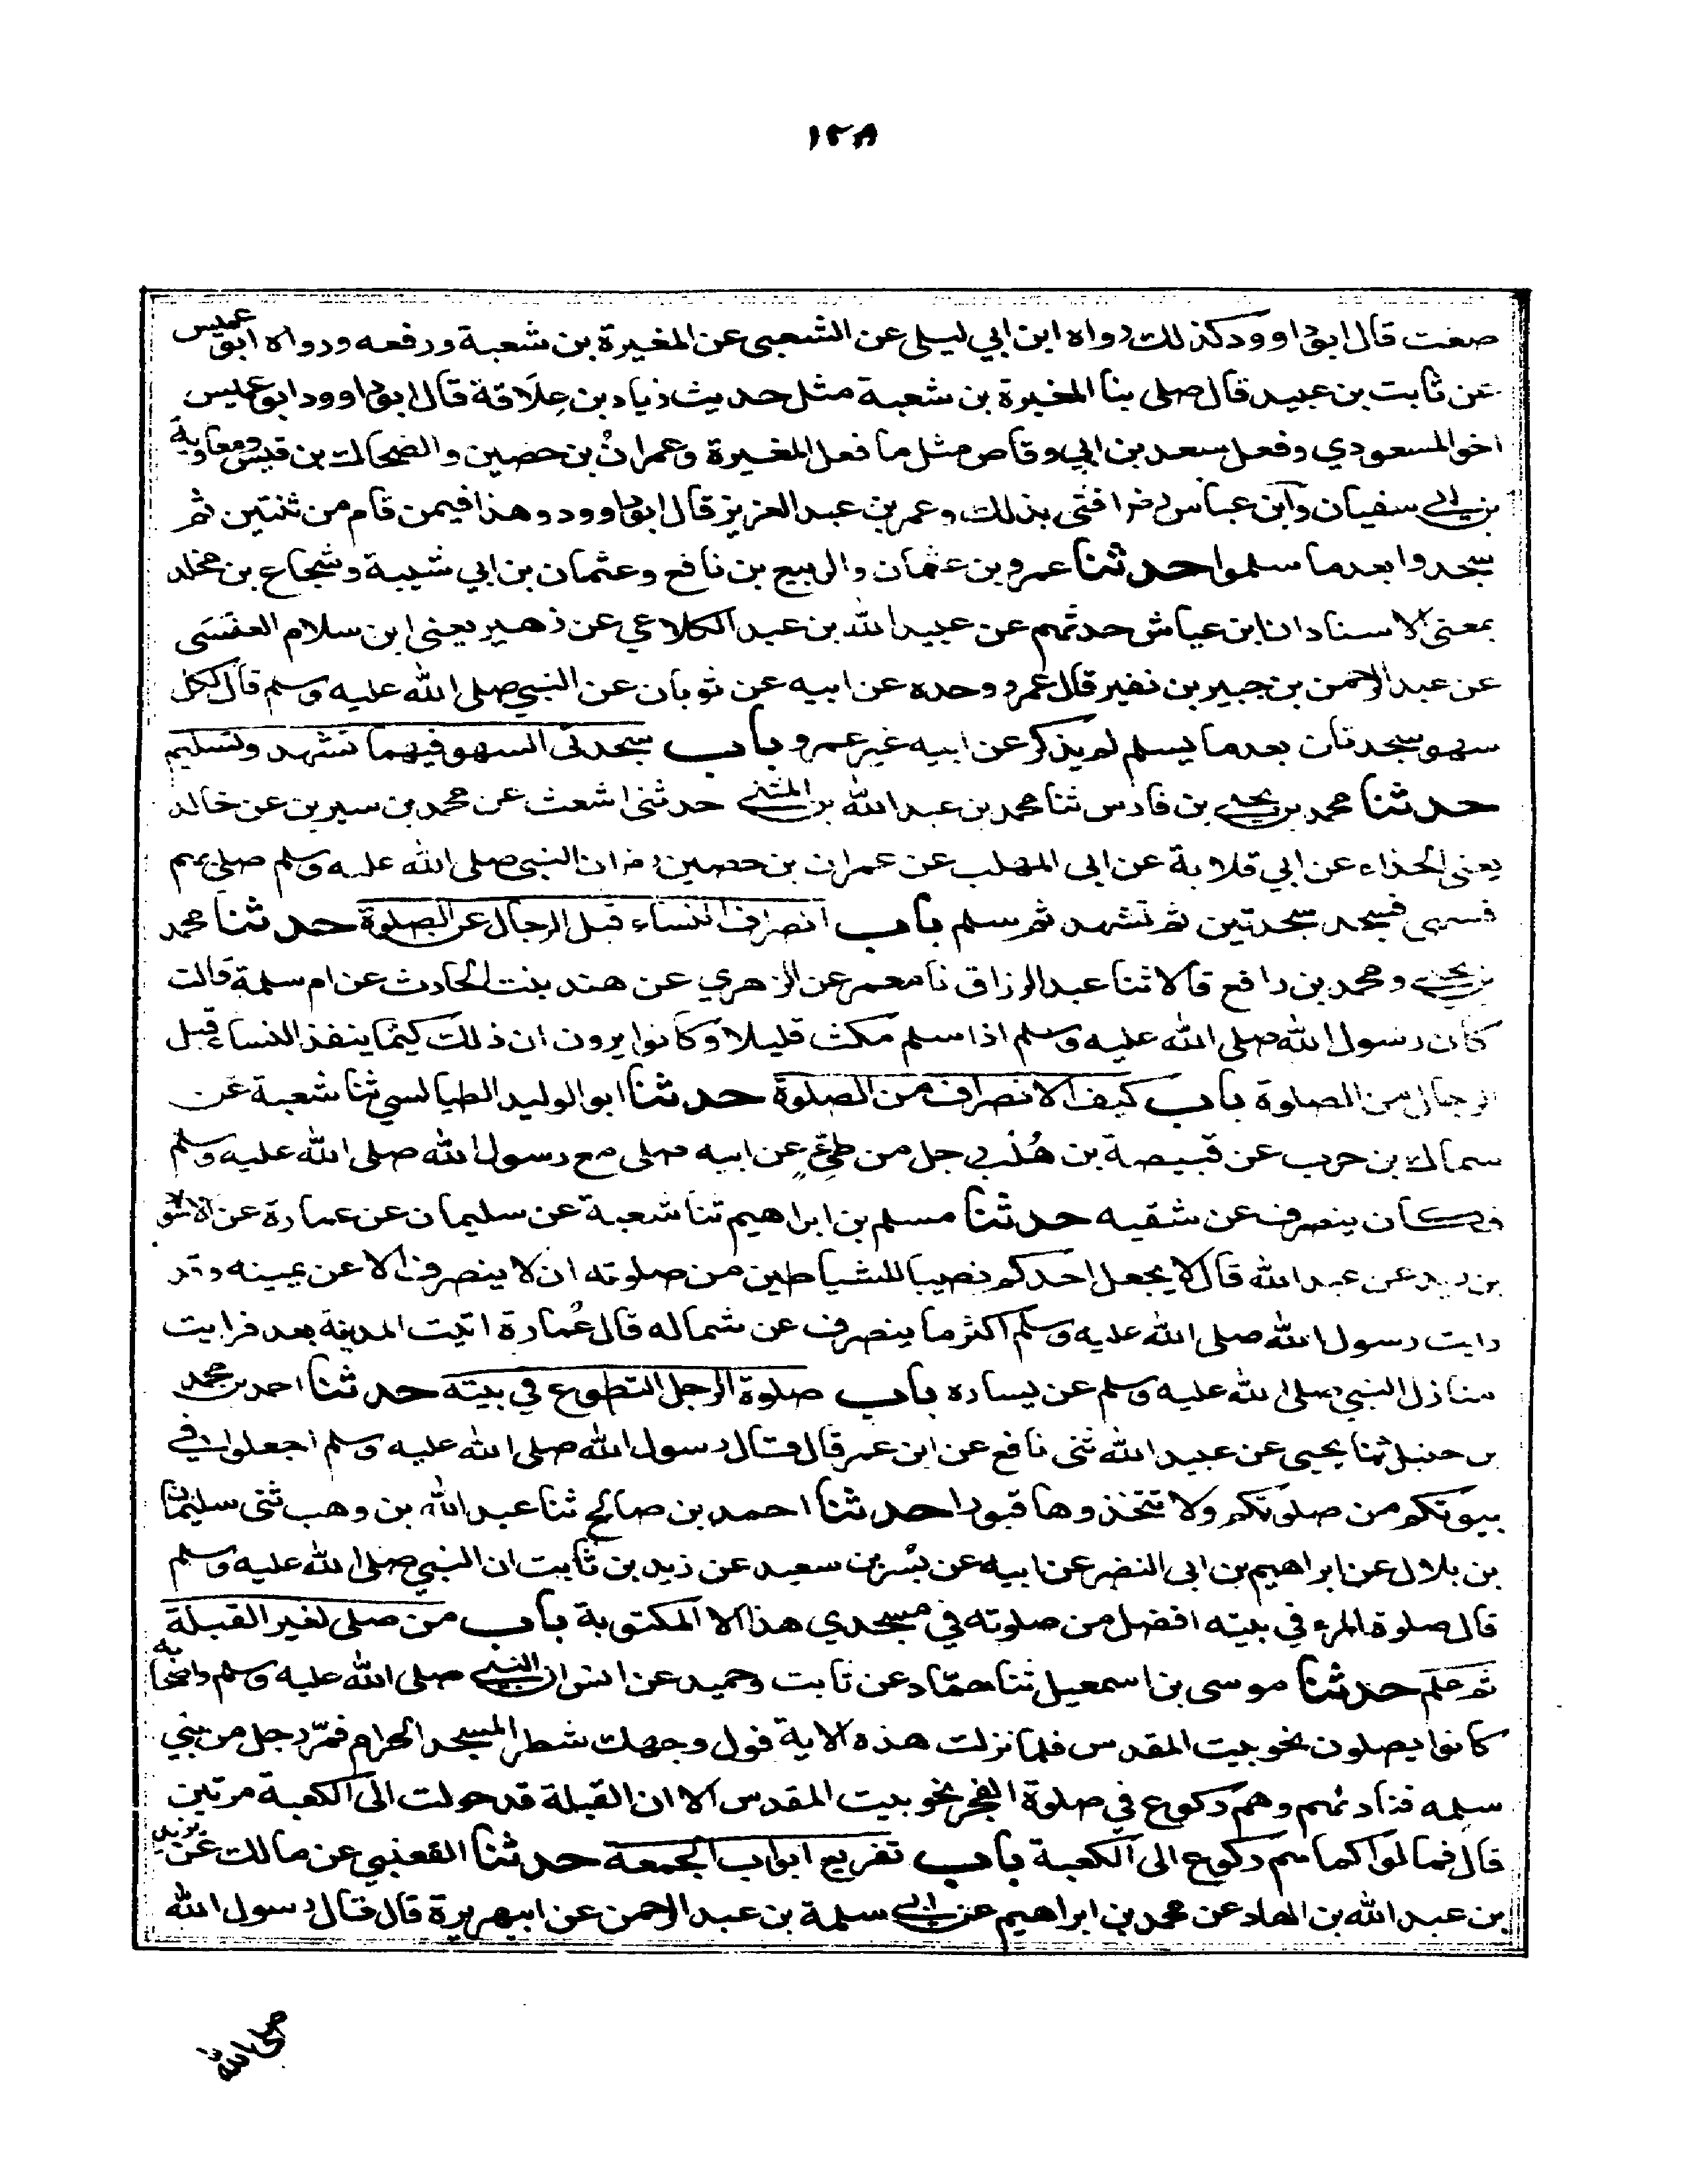 ١٢٨
صنعت قال ابو داوود كذلك رواه ابن ابي ليلى عن الشعبى عن المغيرة بن شعبة ورفعه ورواه ابو عميس
عن ثابت بن عبيد قال صلى بنا المغيرة بن شعبة مثل حديث زياد بن علاقة قال ابو داوود ابو عميس
اخو المسعودي وفعل سعد بن ابي وقاص مثل ما فعل المغيرة وعمران بن حصين والضحاك بن قيس ومعاوية
بن ابي سفيان وابن عباس رض افتى بذلك وعمر بن عبد العزيز قال ابو داوود وهذا فيمن قام من ثنتين ثم
سجدوا بعد ما سلموا حدثنا عمرو بن عثمان والربيع بن نافع وعثمان بن ابي شيبة وشجاع بن مخلد
بمعنى الاسناد ان ابن عياش حدثهم عن عبيد الله بن عبد الكلاعي عن زهير يعنى ابن سلام العنسى
عن عبد الرحمن بن جبير بن نفير قال عمرو وحده عن ابيه عن ثوبان عن النبي صلى الله عليه وسلم قال لكل
سهو سجدتان بعد ما يسلم لم يذكر عن ابيه غير عمرو باب سجدتى السهو فيهما تشهد وتسليم
حدثنا محمد بن يحيى بن فارس ثنا محمد بن عبد الله بن المثنى حدثنى اشعث عن محمد بن سيرين عن خالد
يعنى الحذاء عن ابي قلابة عن ابى المهلب عن عمران بن حصين رض ان النبى صلى الله عليه وسلم صلى بهم
فسهى فسجد سجدتين ثم تشهد ثم سلم باب انصراف النساء قبل الرجال عن الصلوة حدثنا محمد
بن يحيى ومحمد بن رافع قالا ثنا عبد الرزاق نا معمر عن الزهري عن هند بنت الحارث عن ام سلمة قالت
كان رسول الله صلى الله عليه وسلم اذا سلم مكث قليلا وكانوا يرون ان ذلك كيما ينفذ النساء قبل
الرجال من الصلوة باب كيف الانصراف من الصلوة حدثنا ابو الوليد الطيالسي ثنا شعبة عن
سماك بن حرب عن قبيصة بن هلب رجل من طيئ عن ابيه صلى مع رسول الله صلى الله عليه وسلم
فكان ينصرف عن شقيه حدثنا مسلم بن ابراهيم ثنا شعبة عن سليمان عن عمارة عن الاسود
بن يزيد عن عبد الله قال لا يجعل احدكم نصيبا للشياطين من صلوته ان لا ينصرف الا عن يمينه وقد
رايت رسول الله صلى الله عليه وسلم اكثر ما ينصرف عن شماله قال عمارة اتيت المدينة بعد فرايت
منازل النبي صلى الله عليه وسلم عن يساره باب صلوة الرجل التطوع في بيته حدثنا احمد بن محمد
بن حنبل ثنا يحيى عن عبيد الله ثنى نافع عن ابن عمر قال قال رسول الله صلى الله عليه وسلم اجعلوا في
بيوتكم من صلوتكم ولا تتخذوها قبورا حدثنا احمد بن صالح ثنا عبد الله بن وهب ثنى سليمان
بن بلال عن ابراهيم بن ابى النضر عن ابيه عن بسر بن سعيد عن زيد بن ثابت ان النبي صلى الله عليه وسلم
قال صلوة المرء في بيته افضل من صلوته في مسجدي هذا الا المكتوبة باب من صلى لغير القبلة
ثم علم حدثنا موسى بن اسمعيل ثنا حماد عن ثابت وحميد عن انس ان النبي صلى الله عليه وسلم واصحابه
كانوا يصلون نحو بيت المقدس فلما نزلت هذه الاية فول وجهك شطر المسجد الحرام فمر رجل من بني
سلمه فناداهم وهم ركوع في صلوة الفجر نحو بيت المقدس الا ان القبلة قد حولت الى الكعبة مرتين
قال فمالوا كما هم ركوع الى الكعبة باب تفريع ابواب الجمعة حدثنا القعنبي عن مالك عن يزيد
بن عبد الله بن الهاد عن محمد بن ابراهيم عن ابي سلمة بن عبد الرحمن عن ابيهريرة قال قال رسول الله
صلى الله